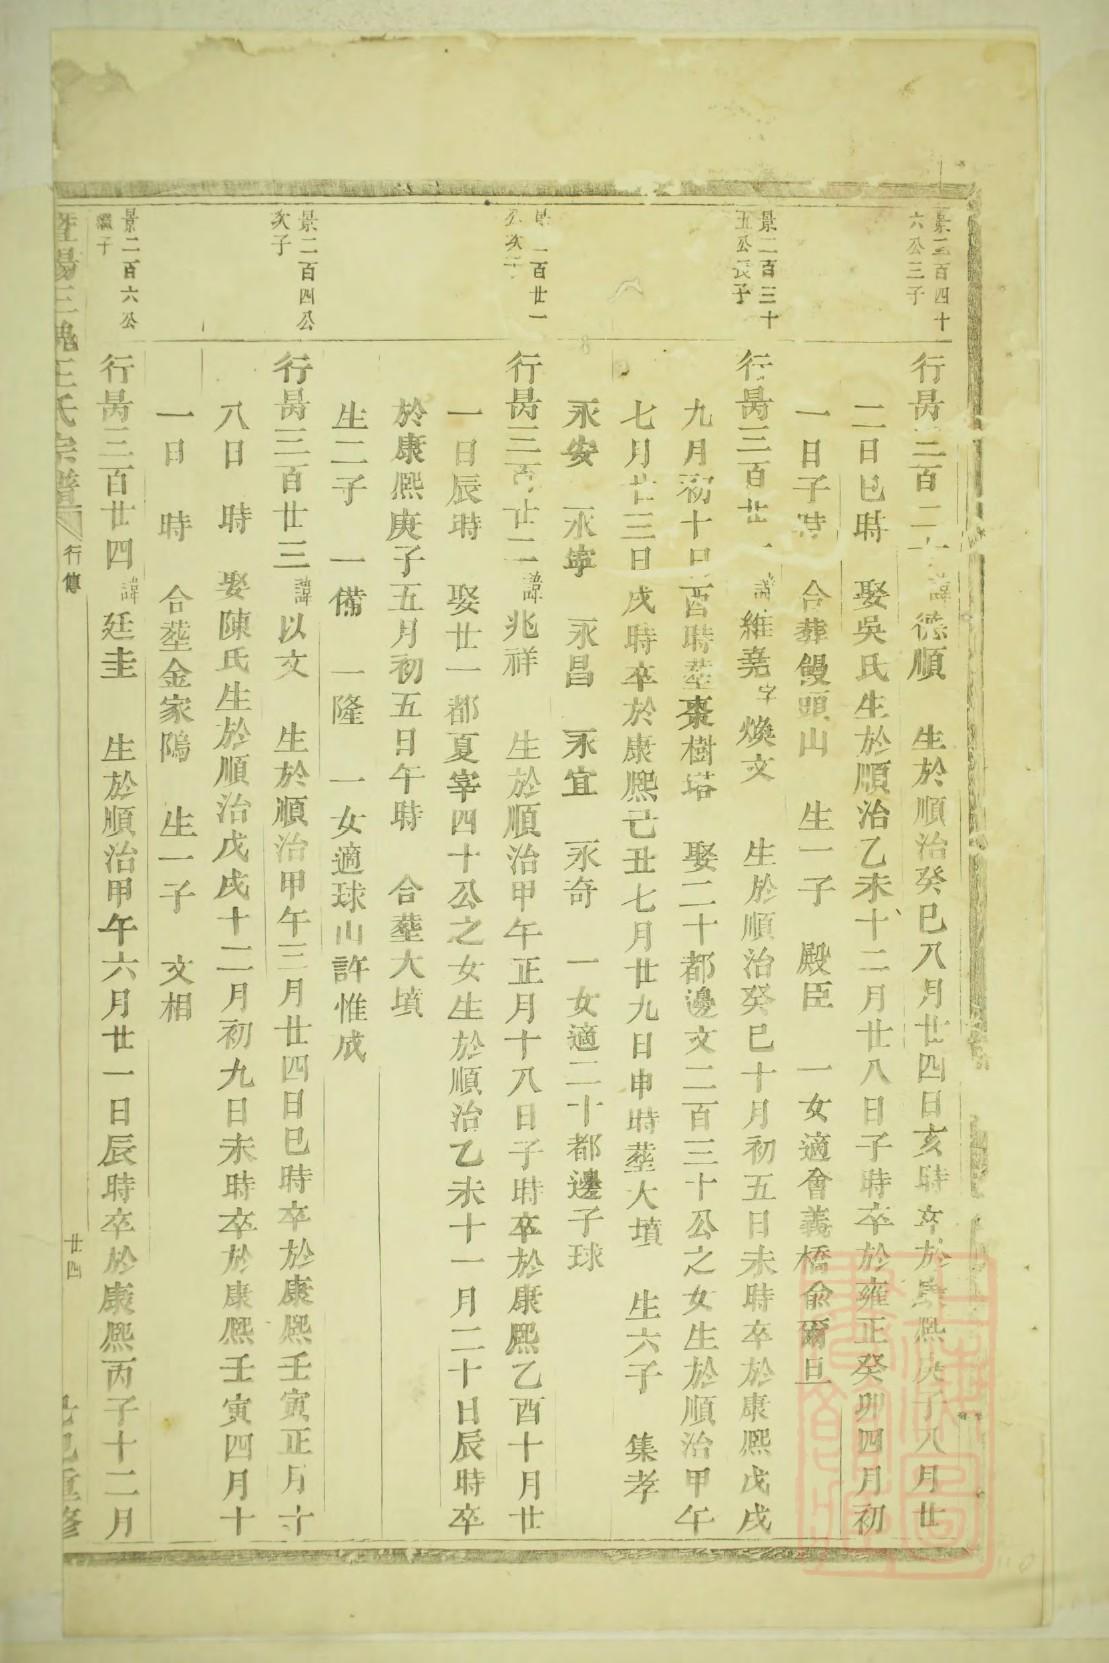 景三百四十
六公三子
行昺三百二 諱德順 生於順治癸巳八月廿四日亥時卒於康熙庚子八月廿
二日巳時 娶吳氏生於順治乙未十二月廿八日子時卒於雍正癸卯四月初
一日子時 合葬饅頭山 生一子 殿臣 一女適會義橋俞爾旦
景二百三十
五公長子
行昺三百廿 諱維堯字煥文 生於順治癸巳十月初五日未時卒於康熙戊戌
九月初十日酉時塟棗樹塔 娶二十都邊文二百三十公之女生於順治甲午
七月廿三日戌時卒於康熙己丑七月廿九日申時塟大墳 生六子 集孝
永安 永寧 永昌 永宜 永奇 一女適二十都邊子球
一百廿一
公次子
行昺三百廿二諱兆祥 生於順治甲午正月十八日子時卒於康熙乙酉十月廿
一日辰時 娶廿一都夏宰四十公之女生於順治乙未十一月二十日辰時卒
於康熙庚子五月初五日午時 合塟大墳
生二子 一備 一隆 一女適球山許惟成
景二百四公
次子
行昺三百廿三諱以文 生於順治甲午三月廿四日巳時卒於康熙壬寅正月十
八日 時 娶陳氏生於順治戊戌十二月初九日未時卒於康熙壬寅四月十
一日 時 合塟金家隖 生一子 文相
景二百六公
繼子
行昺三百廿四諱廷圭 生於順治甲午六月廿一日辰時卒於康熙丙子十二月
暨陽三槐王氏宗譜 行傳 廿四 己巳重修